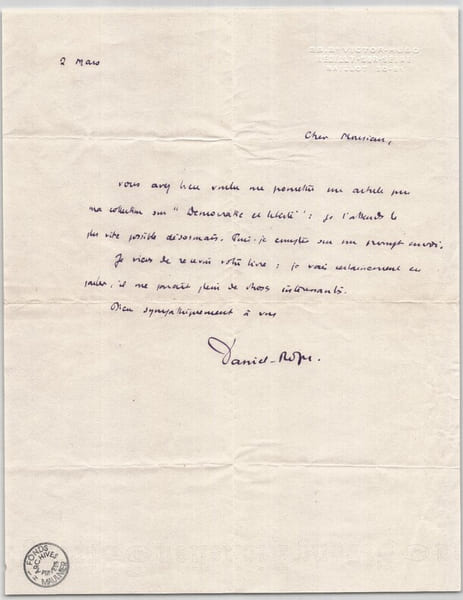 BD VICTOR-HUGO
NEUILLY-SUR-SEINE
MAILLOT
2 Mars
Cher Monsieur,
vous avez bien voulu me promettre un article pour
ma collection sur "Démocratie et liberté" : je l'attends le
plus vite possible désormais. Puis-je compter sur un prompt envoi.
Je viens de recevoir votre livre : je vais certainement en
parler, il me paraît plein de choses intéressantes.
Bien sympathiquement à vous
Daniel-Rops.
FONDS
ARCHIVES
MAULNIER